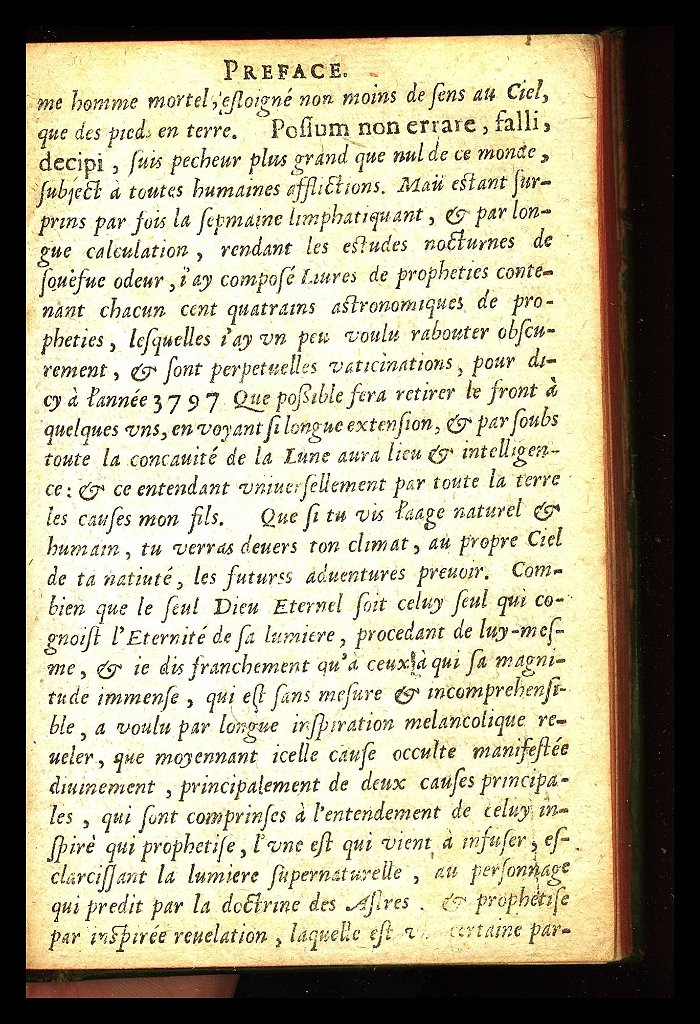 PREFACE.
me homme mortel, esloigné non moins de sens au Ciel,
que des pieds en terre. Possum non errare, falli,
decipi, suis pecheur plus grand que nul de ce monde,
subject à toutes humaines afflictions. Maü estant sur-
prins par fois la sepmaine limphatiquant, & par lon-
gue calculation, rendant les estudes nocturnes de
souëfue odeur, i'ay composé Liures de propheties conte-
nant chacun cent quatrains astronomiques de pro-
pheties, lesquelles i'ay vn peu voulu rabouter obscu-
rement, & sont perpetuelles vaticinations, pour di-
cy à l'année 3797 Que possible fera retirer le front à
quelques vns, en voyant si longue extension, & par soubs
toute la concauité de la Lune aura lieu & intelligen-
ce: & ce entendant vniuersellement par toute la terre
les causes mon fils. Que si tu vis l'aage naturel &
humain, tu verras deuers ton climat, au propre Ciel
de ta natiuté, les futurss aduentures preuoir. Com-
bien que le seul Dieu Eternel soit celuy seul qui co-
gnoist l'Eternité de sa lumiere, procedant de luy-mes-
me, & ie dis franchement qu'à ceux là qui sa magni-
tude immense, qui est sans mesure & incomprehensi-
ble, a voulu par longue inspiration melancolique re-
ueler, que moyennant icelle cause occulte manifestée
diuinement, principalement de deux causes principa-
les, qui sont comprinses à l'entendement de celuy in-
spirè qui prophetise, l'vne est qui vient à infuser, es-
clarcissant la lumiere supernaturelle, au personnage
qui predit par la doctrine des Astres. & prophetise
par inspirée reuelation, laquelle est certaine par-